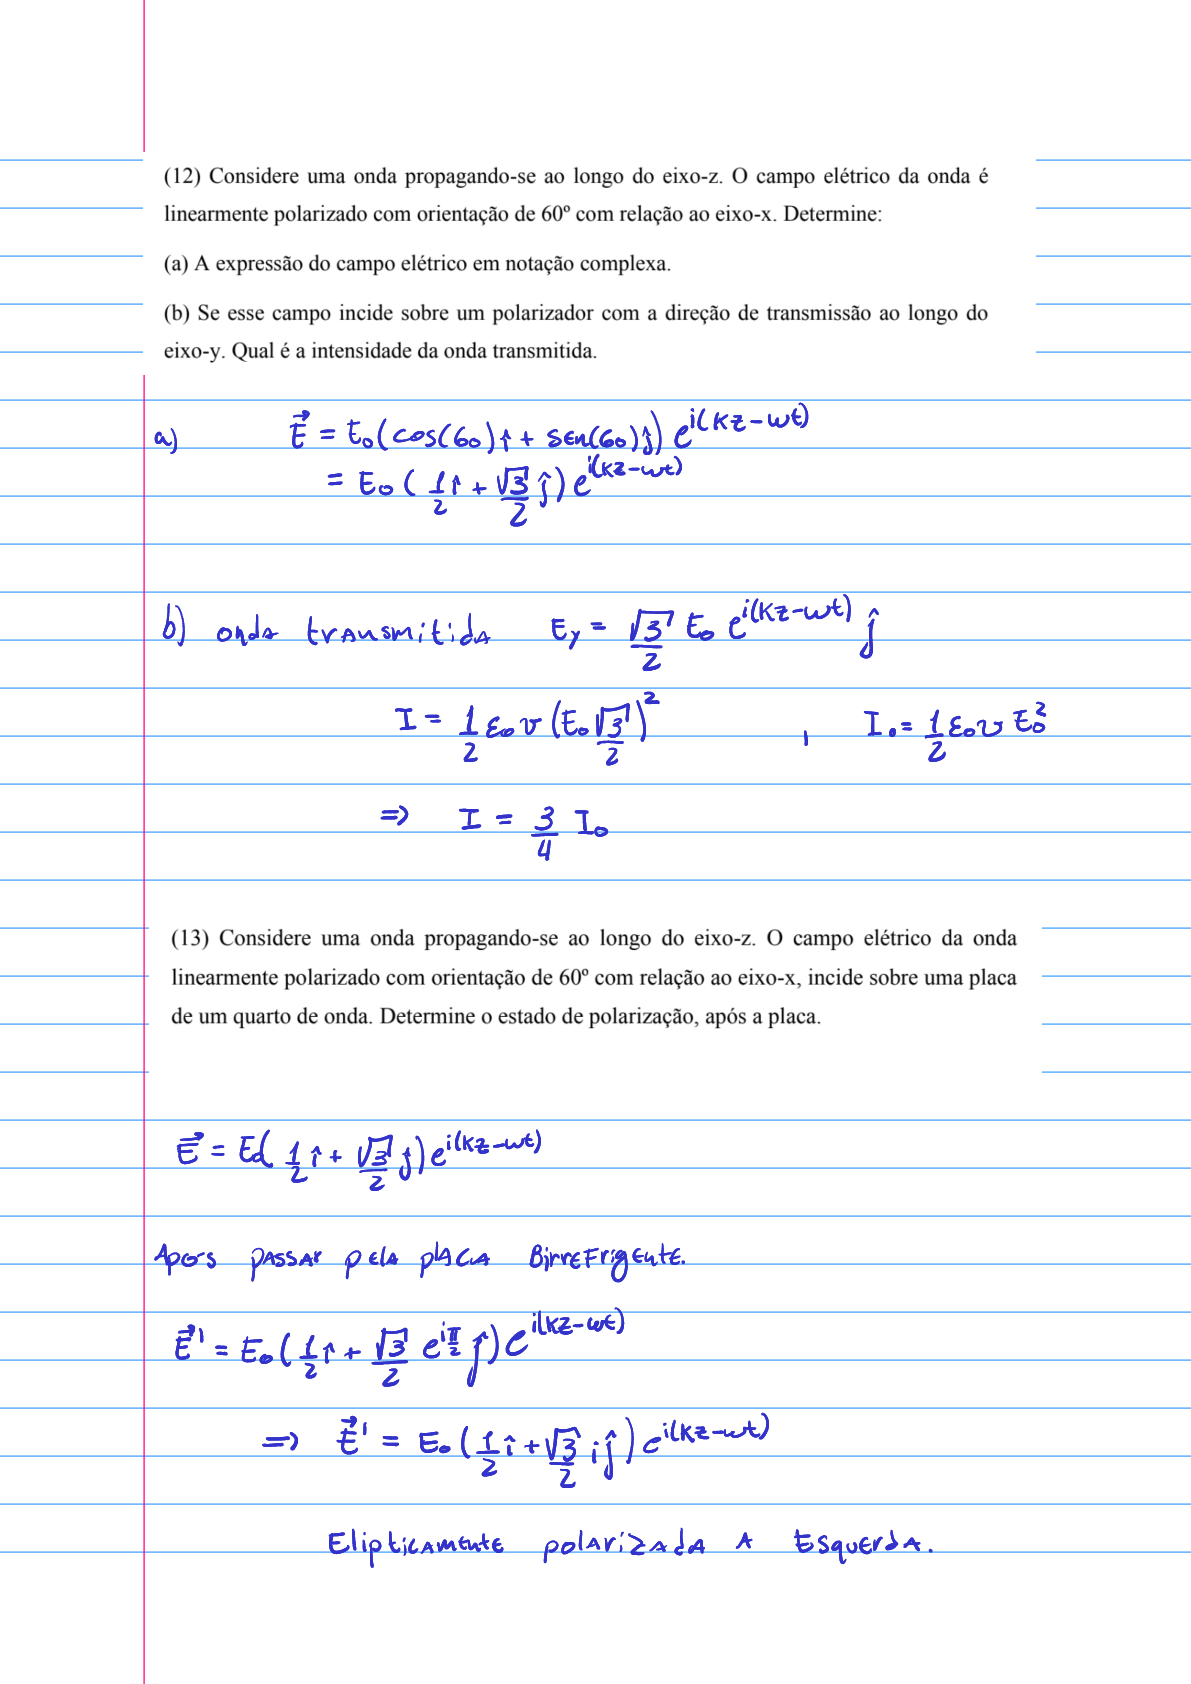 (12) Considere uma onda propagando-se ao longo do eixo-z. O campo elétrico da onda é
linearmente polarizado com orientação de 60º com relação ao eixo-x. Determine:
(a) A expressão do campo elétrico em notação complexa.
(b) Se esse campo incide sobre um polarizador com a direção de transmissão ao longo do
eixo-y. Qual é a intensidade da onda transmitida.
a) E⃗ = E₀(cos(60)î + sen(60)ĵ) e^{i(kz-wt)}
= E₀ (1/2 î + √3/2 ĵ) e^{i(kz-wt)}
b) onda transmitida Ey = √3/2 E₀ e^{i(kz-wt)} ĵ
I = 1/2 ε₀ v (E₀ √3/2)² , I₀ = 1/2 ε₀ v E₀²
=> I = 3/4 I₀
(13) Considere uma onda propagando-se ao longo do eixo-z. O campo elétrico da onda
linearmente polarizado com orientação de 60º com relação ao eixo-x, incide sobre uma placa
de um quarto de onda. Determine o estado de polarização, após a placa.
E⃗ = E₀(1/2 î + √3/2 ĵ) e^{i(kz-wt)}
Após passar pela placa Birrefrigente.
E⃗' = E₀(1/2 î + √3/2 e^{iπ/2} ĵ) e^{i(kz-wt)}
=> E⃗' = E₀ (1/2 î + √3/2 i ĵ) e^{i(kz-wt)}
Elipticamente polarizada a Esquerda.